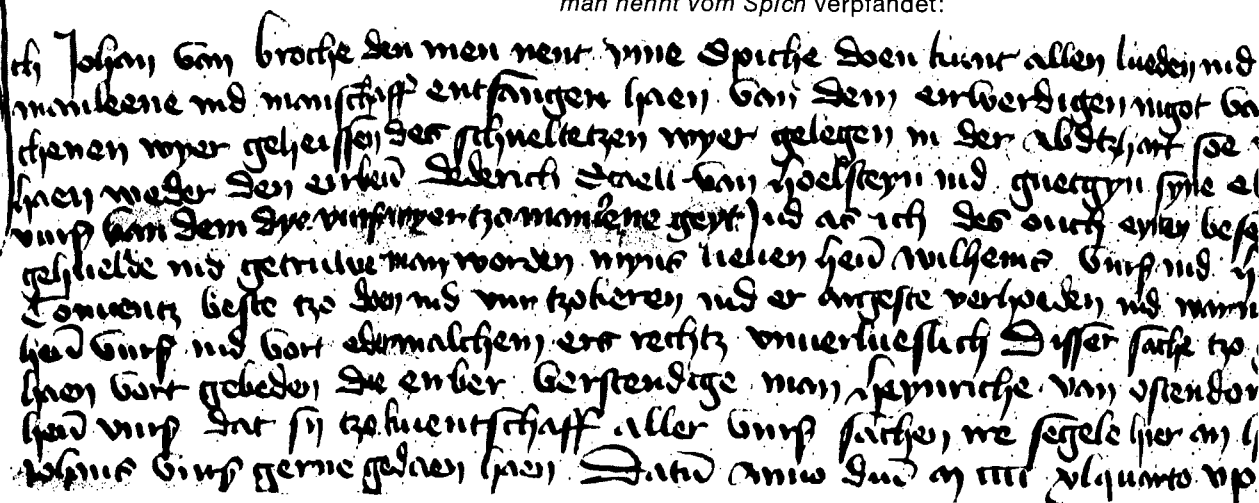 man nennt vom Spich verpfändet:
ch Johan van broche den men nent vme Spiche doen kunt allen lueden ind
manleene ind manschaff entfangen haen van dem eirwerdigen in got va
chenen wyer geheissen des schueltetzen wyer gelegen in der soe
haen weder den eirbern Dederich Staell van hoelsteyn ind guetgyn syne el
vurß van dem dye vurß wyer tzo manlene geyt Ind as ich des ouch eynen bese
gehuelde ind getruwe man worden myns lieuen hern wilhems vurß ind
Conuentz beste tzo doen ind vur tzokeren ind er argeste verhoeden ind warn
hern vurß ind vort edermalchem ers rechtz vnuerlueslich Disser sache tzo
haen vort gebeden die erber verstendige man heynriche van ostendor
hern vurß dat sy tzo kuentschaff aller vurß sachen re segele hier an
vurß gerne gedaen haen Datum Anno dni m cccc xlquarto vp